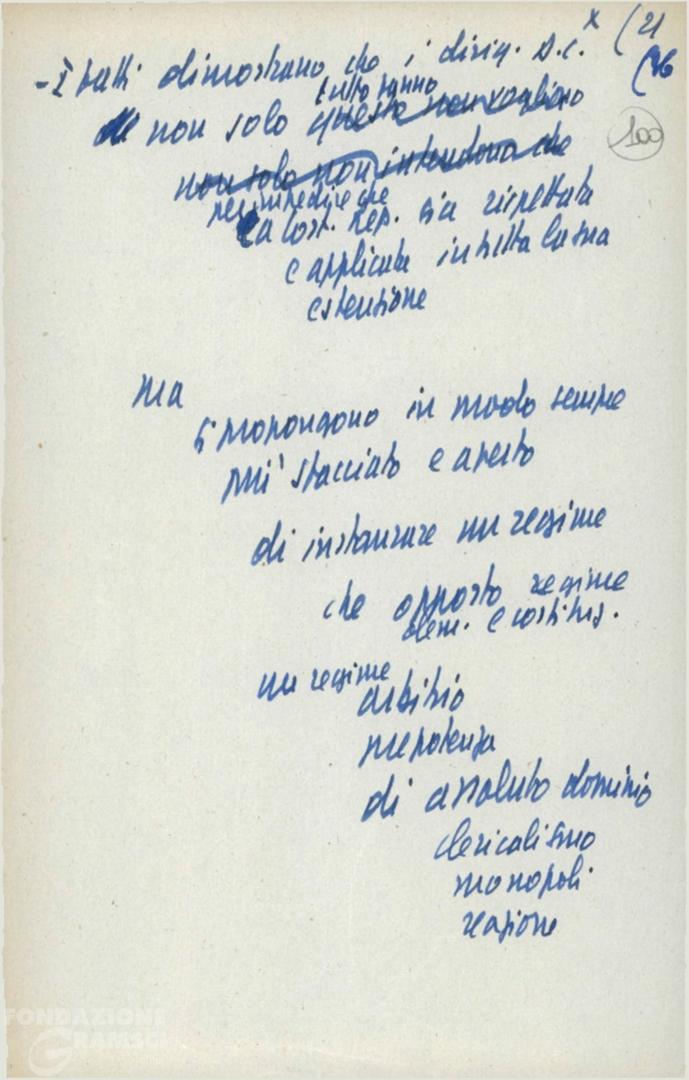 - I fatti dimostrano che i dirig. D.C. x (21
(26
100
tutto fanno
non solo questo non vogliono
non solo non intendono che
per impedire che
la Cost. Rep. sia rispettata
e applicata in tutta la sua
estensione
Ma
si propongono in modo sempre
più sfacciato e aperto
di instaurare un regime
che opposto regime
dem. e costituz.
un regime
arbitrio
prepotenza
di assoluto dominio
clericalismo
monopoli
reazione
FONDAZIONE
GRAMSCI